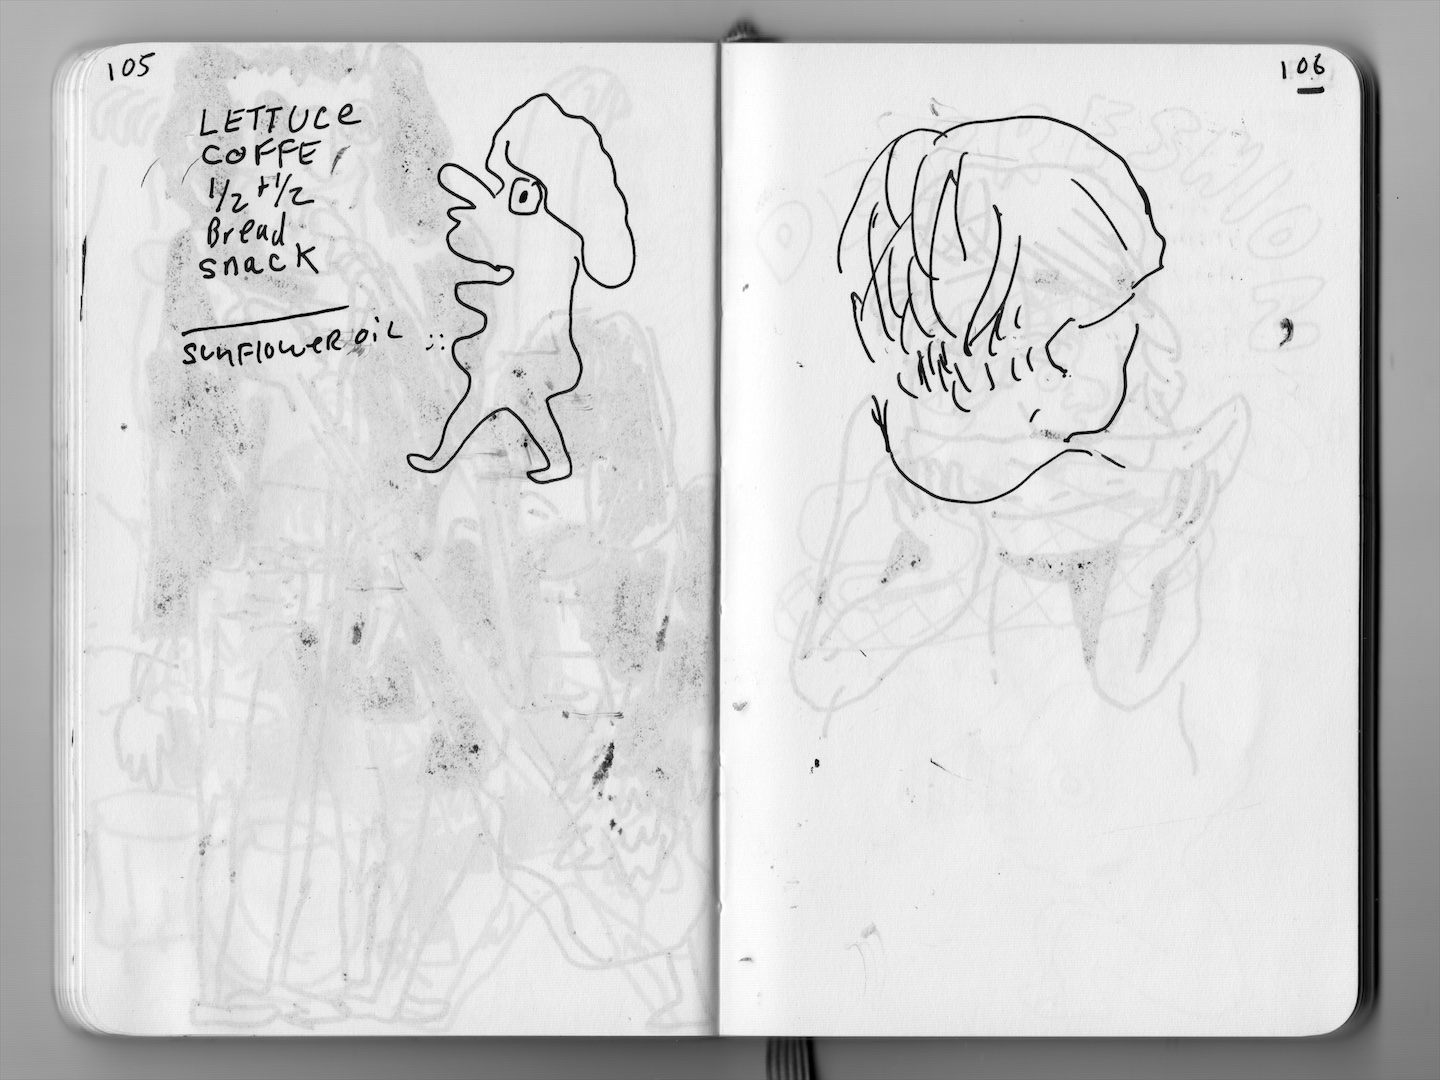 105
LETTUCe
COFFE
1/2 + 1/2
Bread
snack
sunFlOweR oiL
106